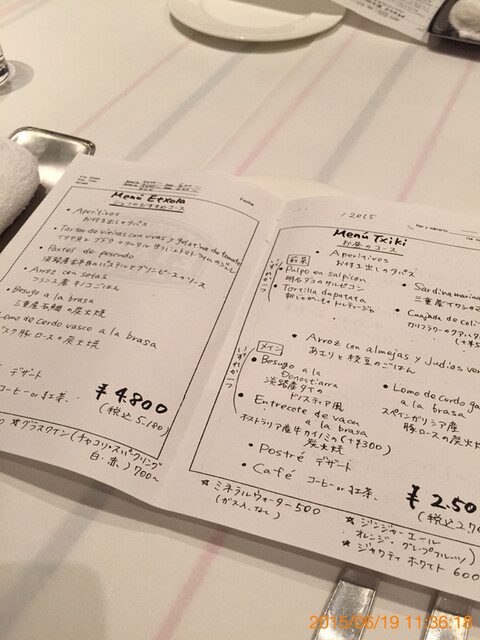 Menú Etxola
シェフのおすすめコース
• Aperitivos
お付き出しのタパス
Tartar de vieiras con uvas y gelatina de tomate
• Pastel de pescado
• Arroz con setas
フランス産キノコごはん
• Besugo a la brasa
三重産石鯛の炭火焼
Lomo de cerdo vasco a la brasa
バスク豚ロースの炭火焼
デザート
コーヒー or 紅茶.
¥4.800
(税込5.180)
グラスワイン(チャコリ・スパークリング
白・赤) 700~
2015
Menú Txiki
お昼のコース
Aperitivos
お付き出しのタパス
前菜
いずれか一つ
Pulpo en salpicon
明石ダコのサルピコン
• Tortilla de patata
新じゃがいものトルティージャ
• Sardina marina
三重産イワシの
• Cuajada de coli
カリフラワーのクアハダ
• Arroz con almejas y judías ver
あさりと枝豆のごはん
メイン
いずれか一つ
• Besugo a la
Donostiarra
淡路産ダイの
ドノスティア風
• Entrecote de vaca
a la brasa
オーストラリア産牛カイノミの(+¥300)
炭火焼
• Lomo de cerdo ga
a la brasa
スペインガリシア産
豚ロースの炭火焼
• Postré デザート
• Café コーヒー or 紅茶.
¥2.50
(税込2.70
☆ ミネラルウォーター500
(ガス入.なし)
☆ ジンジャーエール
オレンジ・グレープフルーツ)
☆ ジャクティ ホワイト 600
2015/06/19 11:36:18